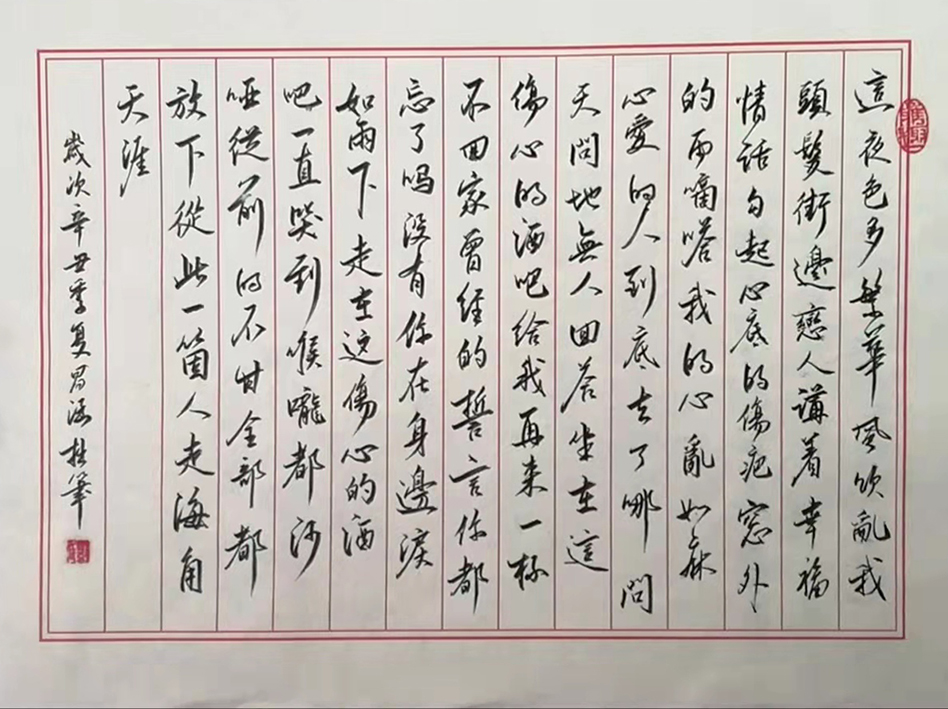 這夜色多繁華風吹亂我
頭髮街邊戀人講着幸福
情話勾起心底的傷疤窓外
的雨嘀嗒我的心亂如麻
心愛的人到底去了哪問
天問地無人回答坐在這
傷心的酒吧給我再来一杯
不回家曾经的誓言你都
忘了吗沒有你在身邊淚
如雨下走在这傷心的酒
吧一直哭到喉嚨都沙
哑從前的不甘全部都
放下從此一箇人走海角
天涯
歲次辛丑季夏